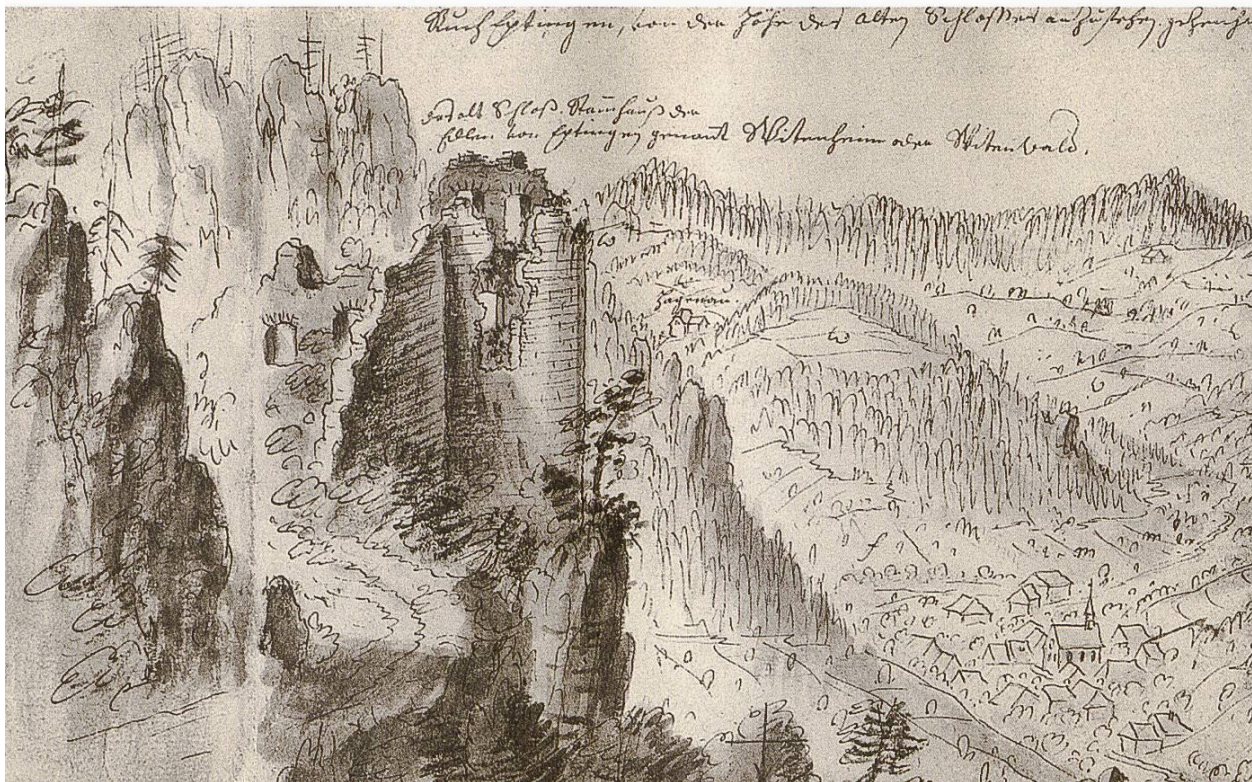 Ruch Eptingen, von der Höhe des alten Schlosses anzusehen,
das alt Schloß. Stammhauß der
Edlen von Eptingen genant Witenheim oder Witenwald.
Hagenau.